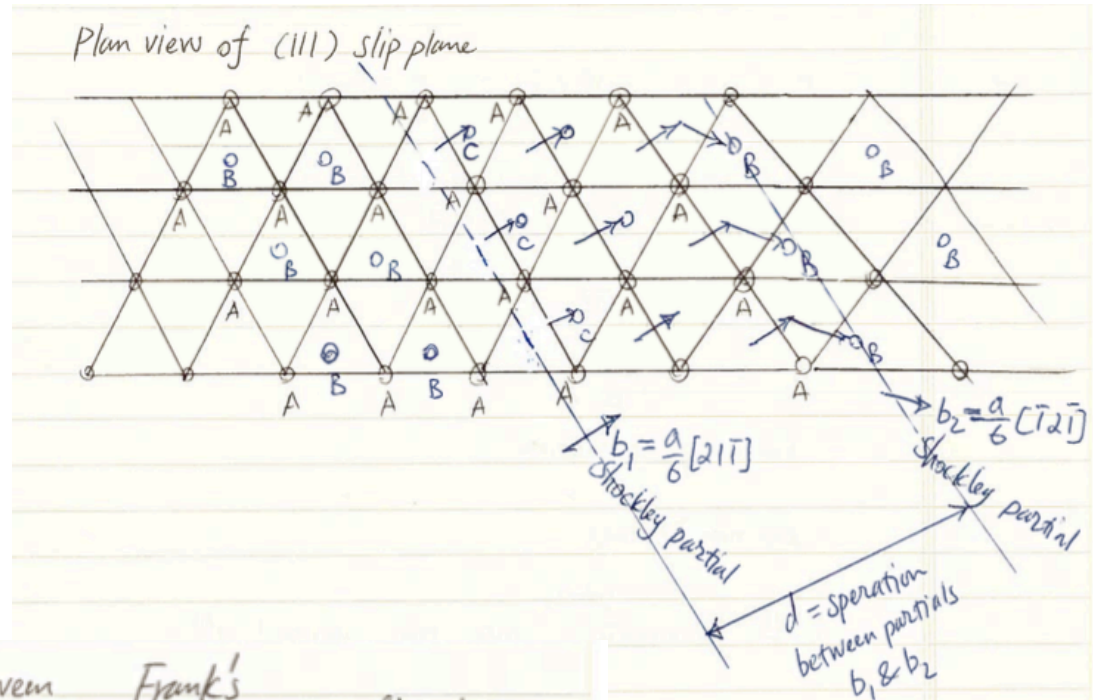 Plan view of (111) slip plane
A A A A A
B B C B B
A A A A A A
B B C B B
A A A A A A
B B C B
A A A A A
b₁ = a/6 [21̄1̄]
b₂ = a/6 [1̄21̄]
Shockley partial
Shockley partial
d = speration
between partials
b₁ & b₂
Frank's